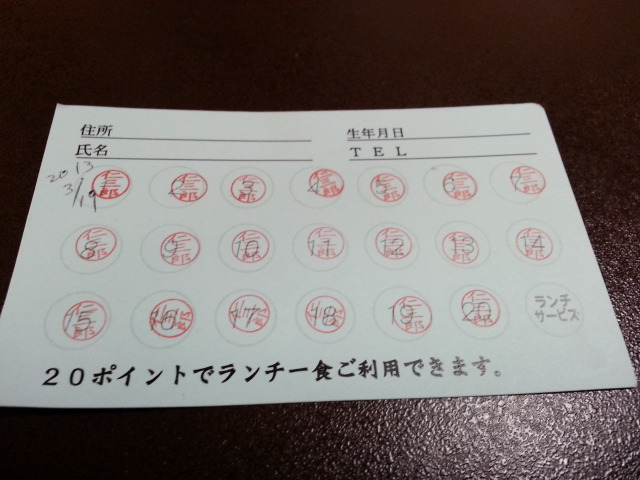 住所 生年月日
氏名 TEL
2013
3/19
1 2 3 4 5 6 7
8 9 10 11 12 13 14
15 16 17 18 19 20 ランチ
サービス
20ポイントでランチ一食ご利用できます。